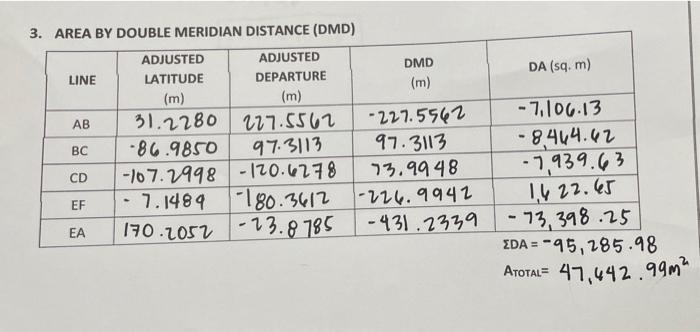 3. AREA BY DOUBLE MERIDIAN DISTANCE (DMD)
LINE ADJUSTED LATITUDE (m) ADJUSTED DEPARTURE (m) DMD (m) DA (sq. m)
AB 31.2280 227.5562 -227.5562 -7,106.13
BC -86.9850 97.3113 97.3113 -8,464.62
CD -107.2998 -120.6278 73.9948 -7,939.63
EF -7.1489 -180.3612 -226.9942 1,622.65
EA 170.2052 -23.8785 -431.2339 -73,398.25
ΣDA = -95,285.98
ATOTAL= 47,642.99m²